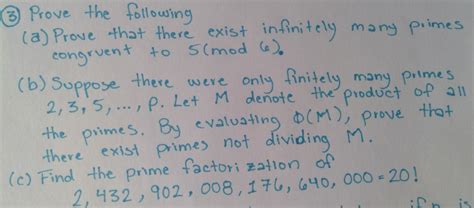 ③ Prove the following
(a) Prove that there exist infinitely many primes
congruent to 5 (mod 6).
(b) Suppose there were only finitely many primes
2, 3, 5, ..., p. Let M denote the product of all
the primes. By evaluating Φ(M), prove that
there exist primes not dividing M.
(c) Find the prime factorization of
2, 432, 902, 008, 176, 640, 000 = 20!